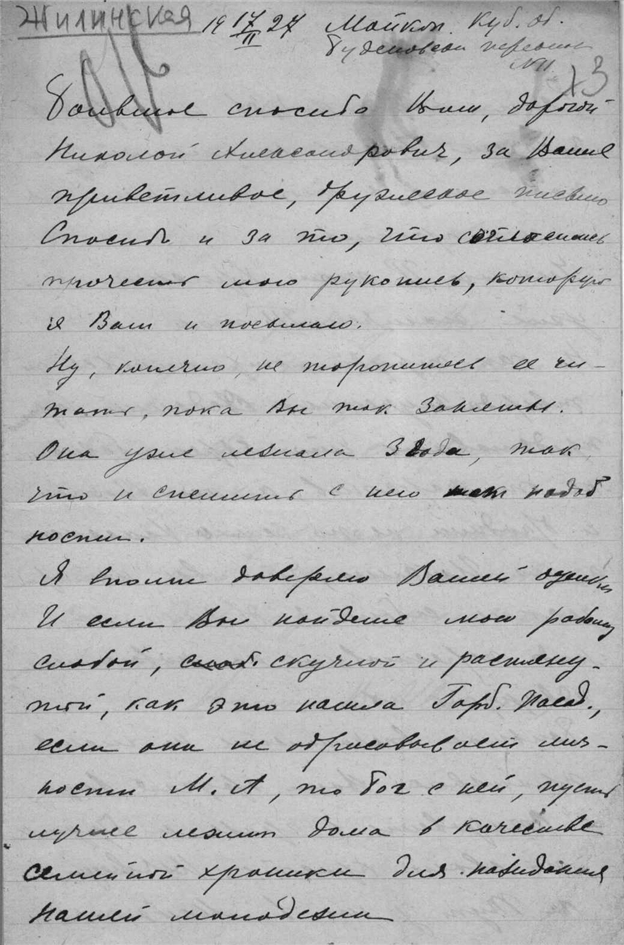 Жилинская 19 17/II 27 Майкоп. Куб. об.
переулок
№11
13
Большое спасибо Вам, дорогой
Николай Александрович, за Ваше
приветливое, дружеское письмо
Спасибо и за то, что согласились
прочесть мою рукопись, которую
я Вам и посылаю.
Ну, конечно, не торопитесь ее чи-
тать, пока Вы так заняты.
Она уже лежала 3 года, так
что и спешить с нею нет надоб
ности.
Я вполне доверяю Вашей оценке
И если Вы найдете мою работу
слабой, скучной и растяну-
той, как это нашла Горб. Посад.,
если она не обрисовывает лич-
ности М. А, то бог с ней, пусть
лучше лежит дома в качестве
семейной хроники для назидания
нашей молодежи